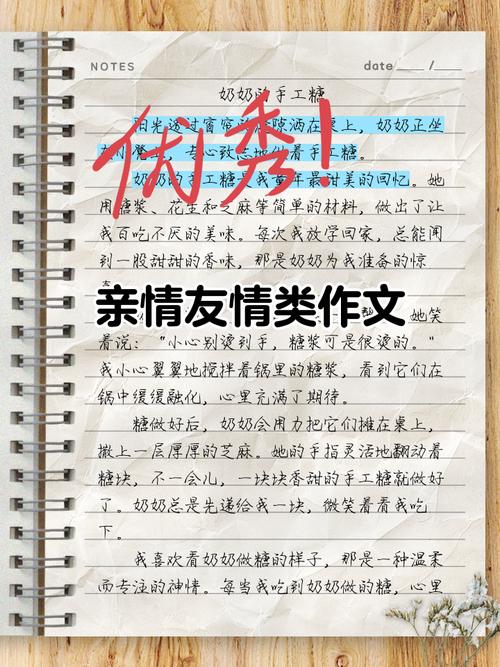 NOTES
date ___ /___
奶奶的手工糖
优秀!
阳光透过窗帘的缝隙洒在桌上，奶奶正坐
在小凳上，专心致志地做着手工糖。
奶奶的手工糖是我童年最甜美的回忆。她
用糖浆、花生和芝麻等简单的材料，做出了让
我百吃不厌的美味。每次我放学回家，总能闻
到一股甜甜的香味，那是奶奶为我准备的惊
亲情友情类作文
她笑
着说："小心别烫到手，糖浆可是很烫的。"
我小心翼翼地搅拌着锅里的糖浆，看到它们在
锅中缓缓融化，心里充满了期待。
糖做好后，奶奶会用力把它们摊在桌上，
撒上一层厚厚的芝麻。她的手指灵活地翻动着
糖块，不一会儿，一块块香甜的手工糖就做好
了。奶奶总是先递给我一块，微笑着看我吃
下。
我喜欢看奶奶做糖的样子，那是一种温柔
而专注的神情。每当我吃到奶奶做的糖，心里